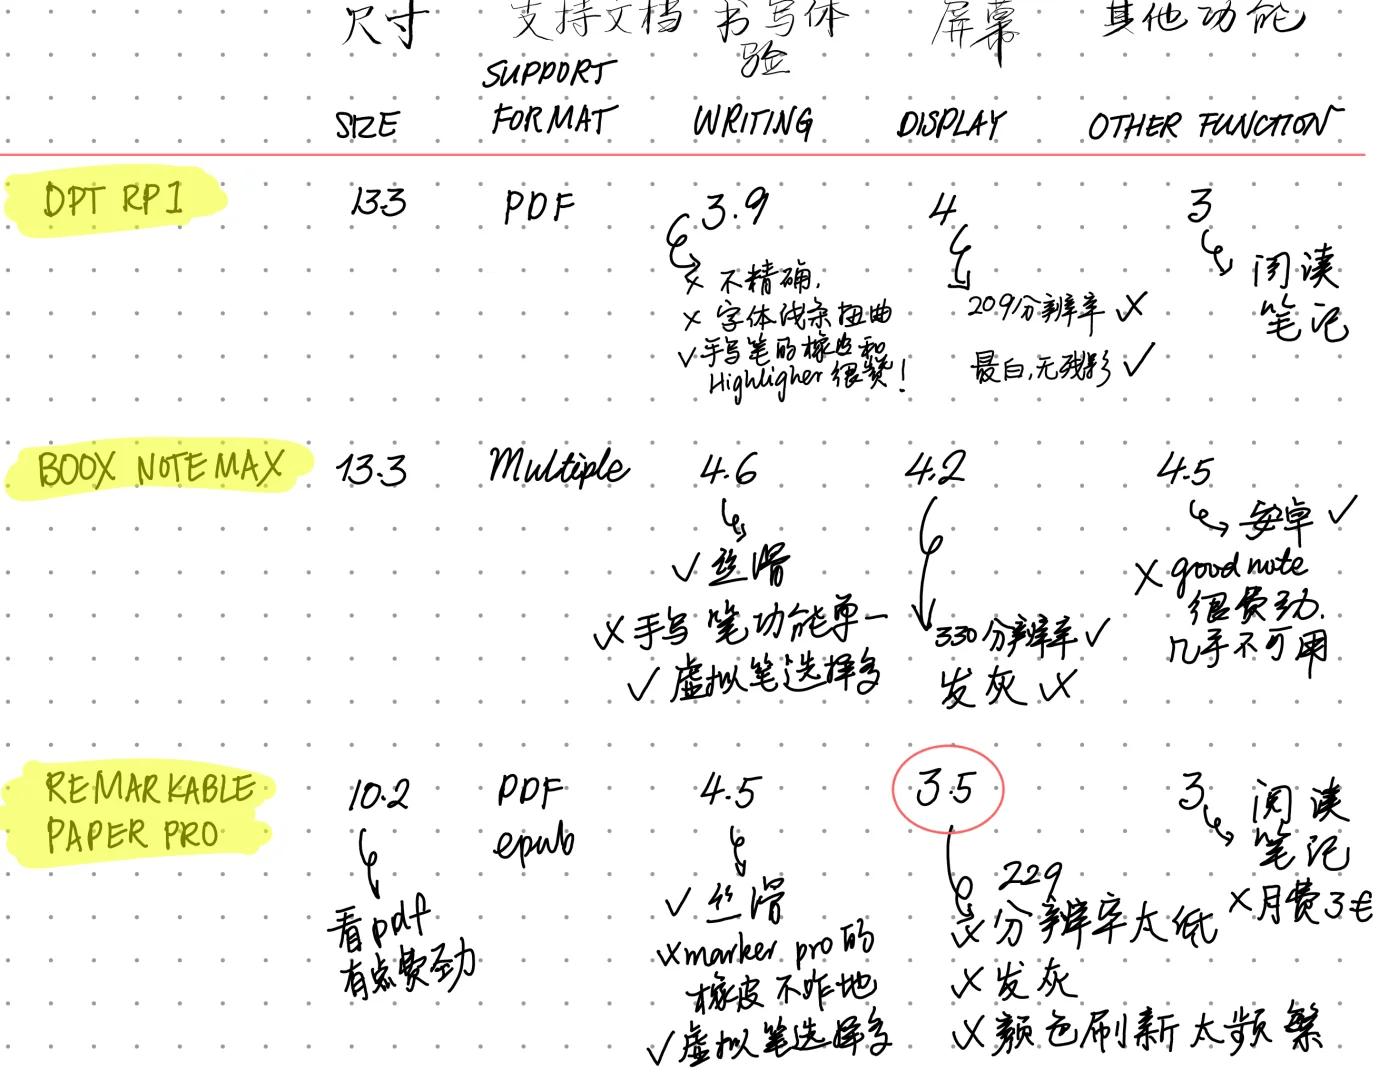 尺寸 支持文档 书写体验 屏幕 其他功能
SIZE SUPPORT FORMAT WRITING DISPLAY OTHER FUNCTION
DPT RP1 13.3 PDF 3.9 4 3
x 不精确.
x 字体线条扭曲
✓ 手写笔的橡皮和
Highligher 很赞!
209分辨率 x
最白,无残影 ✓
阅读
笔记
BOOX NOTE MAX 13.3 Multiple 4.6 4.2 4.5
✓ 丝滑
x 手写笔功能单一
✓ 虚拟笔选择多
330分辨率 ✓
发灰 x
安卓 ✓
x good note
很费劲.
几乎不可用
REMARKABLE 10.2 PDF 4.5 3.5 3
PAPER PRO epub
看pdf
有点费劲
✓ 丝滑
x marker pro的
橡皮不咋地
✓ 虚拟笔选择多
229
x 分辨率太低
x 发灰
x 颜色刷新太频繁
阅读
笔记
x 月费3€